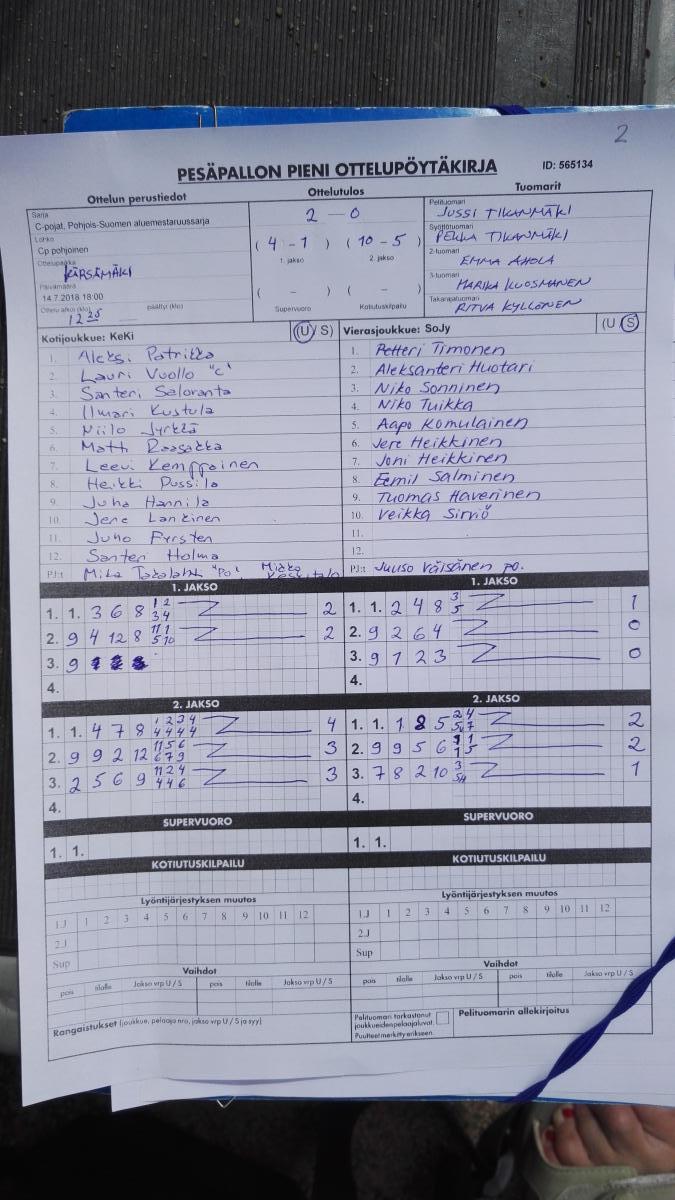 2
PESÄPALLON PIENI OTTELUPÖYTÄKIRJA ID: 565134
Ottelun perustiedot
Sarja
C-pojat, Pohjois-Suomen aluemestaruussarja
Lohko
Cp pohjoinen
Ottelupaikka
KÄRSÄMÄKI
Päivämäärä
14.7.2018 18:00
Ottelu alkoi (klo) päättyi (klo)
12 25
Ottelutulos
2 – 0
( 4 - 1 ) ( 10 - 5 )
1. jakso 2. jakso
( - ) ( - )
Supervuoro Kotiutuskilpailu
Tuomarit
Pelituomari
JUSSI TIKANMÄKI
Syöttötuomari
PEKKA TIKANMÄKI
2-tuomari
EMMA AHOLA
3-tuomari
MARIKA KUOSMANEN
Takarajatuomari
RITVA KYLLÖNEN
Kotijoukkue: KeKi (U S)
1. Aleksi Patrikka
2. Lauri Vuollo "C"
3. Santeri Saloranta
4. Ilmari Kustula
5. Niilo Jyrkkä
6. Matti Raasakka
7. Leevi Kemppainen
8. Heikki Pussila
9. Juho Hannila
10. Jere Lantinen
11. Juho Fyrsten
12. Santeri Holma
PJ:t Mika "Po" Mikko
Vierasjoukkue: SoJy (U S)
1. Petteri Timonen
2. Aleksanteri Huotari
3. Niko Sonninen
4. Niko Tuikka
5. Aapo Komulainen
6. Jere Heikkinen
7. Joni Heikkinen
8. Eemil Salminen
9. Tuomas Haverinen
10. Veikka Sirviö
11.
12.
PJ:t Juuso Väisänen po.
1. JAKSO
1. 1. 3 6 8 1 2 3 4 2
2. 9 4 12 8 11 1 5 10 2
3. 9
4.
1. JAKSO
1. 1. 2 4 8 3 5 1
2. 9 2 6 4 0
3. 9 1 2 3 0
4.
2. JAKSO
1. 1. 4 7 8 1 2 3 4 4 4 4 4 4
2. 9 9 2 12 11 5 6 6 7 9 3
3. 2 5 6 9 11 2 4 4 4 6 3
4.
2. JAKSO
1. 1. 1 8 5 2 4 5 7 2
2. 9 9 5 6 11 1 1 5 2
3. 7 8 2 10 3 1
4.
SUPERVUORO
1. 1.
SUPERVUORO
1. 1.
KOTIUTUSKILPAILU
KOTIUTUSKILPAILU
Lyöntijärjestyksen muutos
1.J 1 2 3 4 5 6 7 8 9 10 11 12
2.J
Sup
Lyöntijärjestyksen muutos
1.J 1 2 3 4 5 6 7 8 9 10 11 12
2.J
Sup
Vaihdot
pois tilalle Jakso vrp U / S pois tilalle Jakso vrp U / S
Vaihdot
pois tilalle Jakso vrp U / S pois tilalle Jakso vrp U / S
Rangaistukset (joukkue, pelaaja nro, jakso vrp U / S ja syy)
Pelituomari tarkastanut
joukkueiden pelaajaluvat.
Puutteet merkitty erikseen.
Pelituomarin allekirjoitus